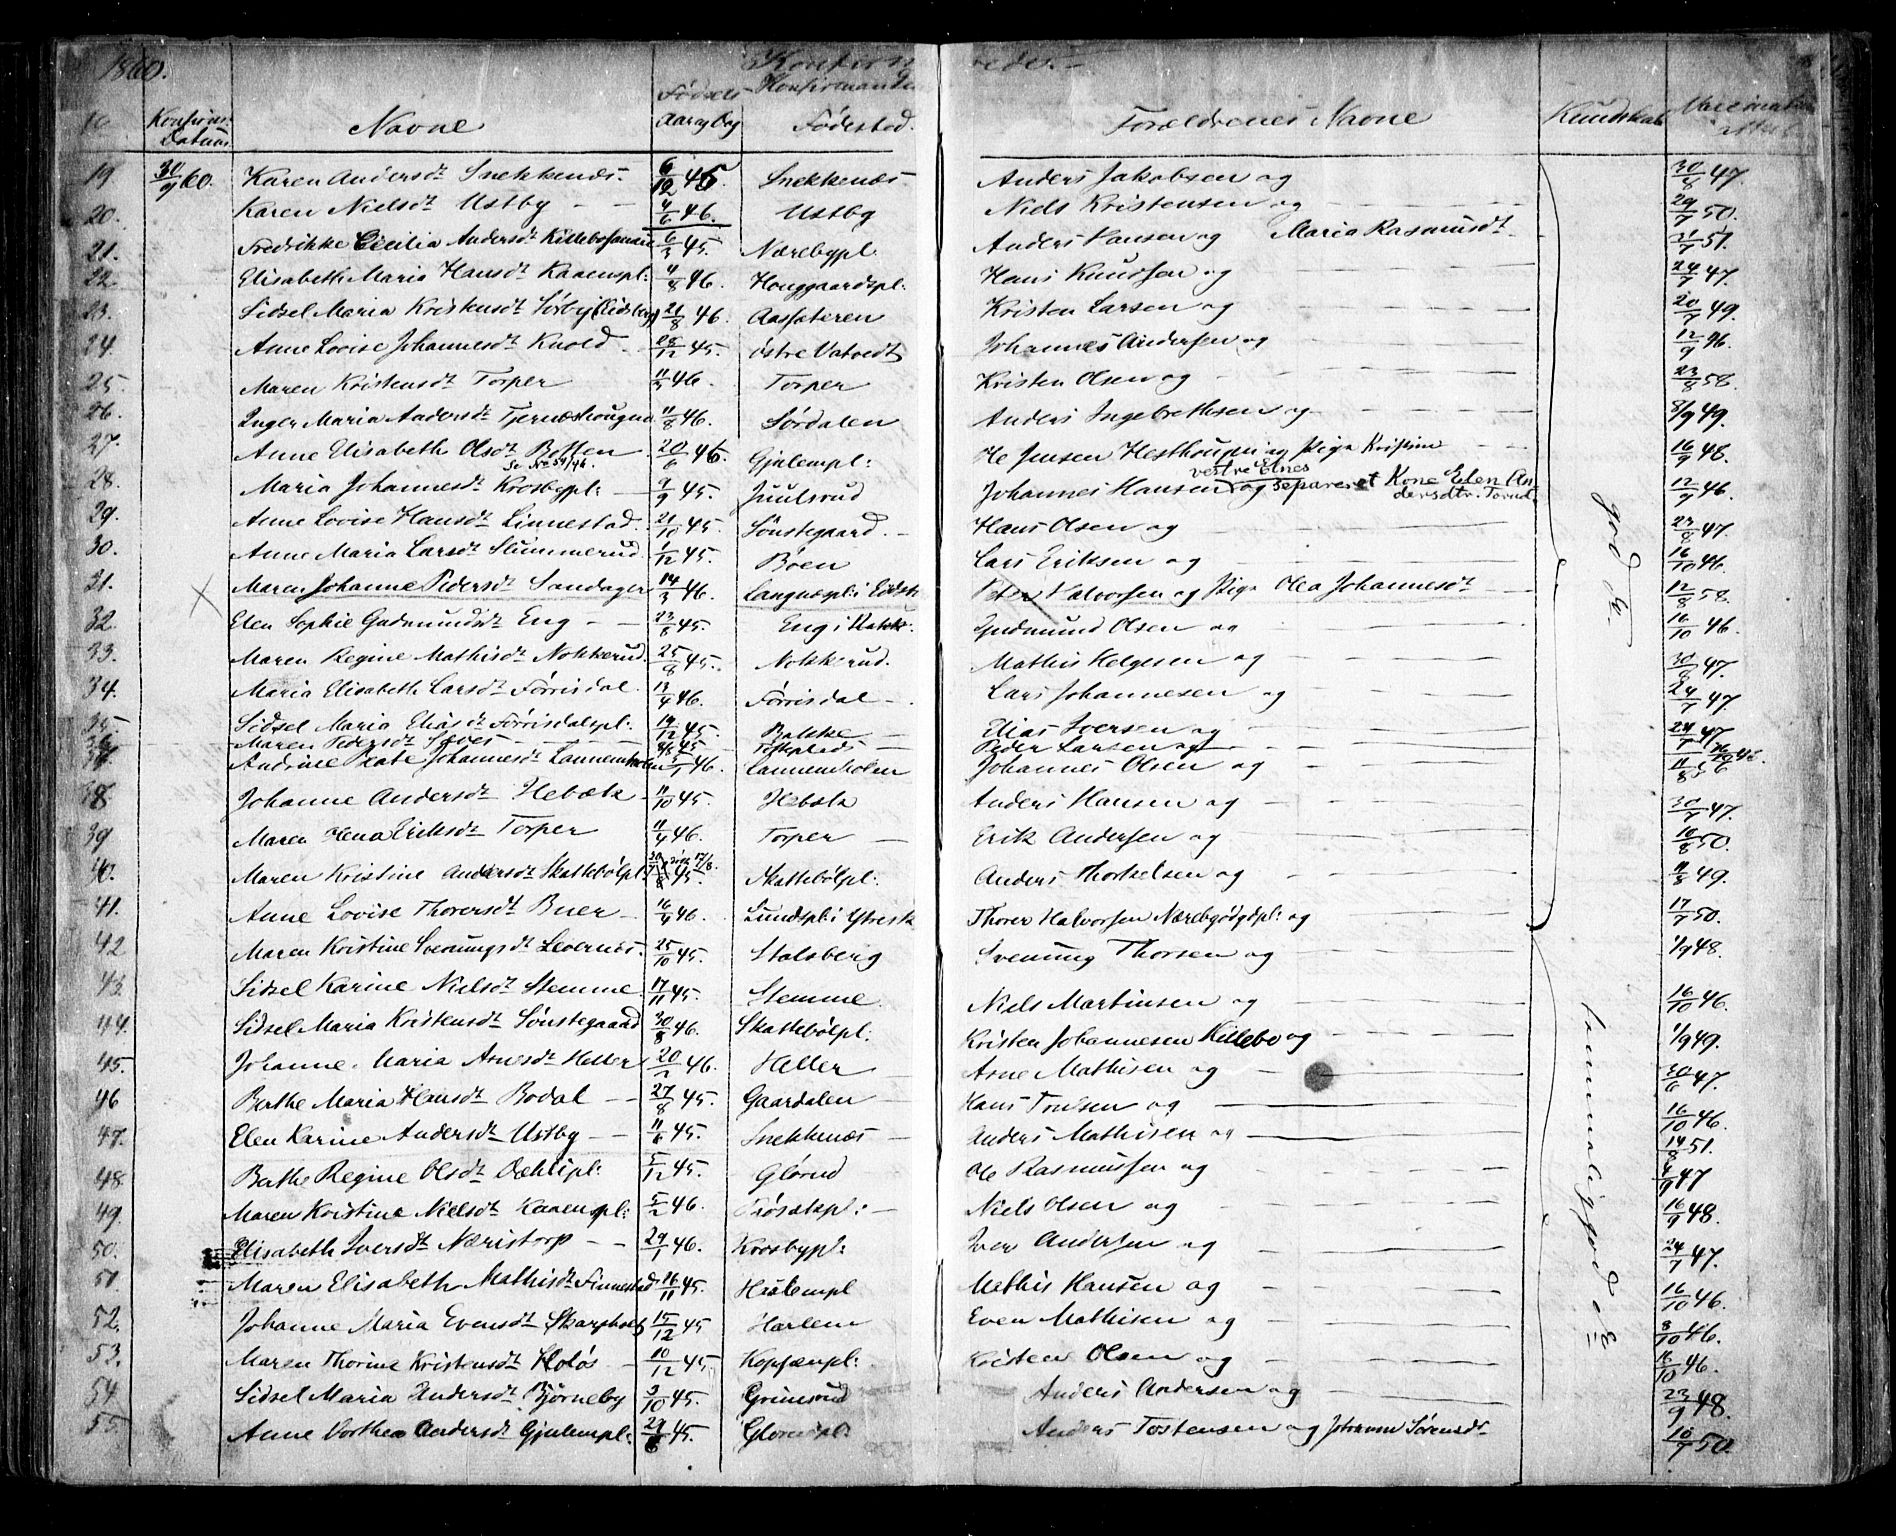 1860. Konfirmerede.
No Konfirms: Datum Navne Fødsels Aar og Dag Konfirmandens Fødested. Forældrenes Navne Kundskab Vaccinations attest
19. 30/9 60. Karen Andersdt Snekkenæs. 6/12 45. Snekkenæs Anders Jakobsen og 30/8 47.
20. Karen Nielsdt Ustby 4/6 46. Ustby Niels Kristensen og 29/7 50.
21. Fredrikke Cecilia Andersdt Killebo 6/3 45. Nærebypl. Anders Hansen og Maria Rasmusdt 21/7 51.
22. Elisabeth Maria Hansdt Kaaenspl: 4/8 46. Houggaardspl: Hans Knudsen og 24/7 47.
23. Sidsel Maria Kristensdt Sørby (Eidsberg) 21/8 46. Aassæteren Kristen Larsen og 20/7 49.
24. Anne Lovise Johannesdt Knold 28/12 45. østre Vatvedt Johannes Andersen og 12/9 46.
25. Maren Kristensdt Torper 11/3 46. Torper Kristen Olsen og 23/8 58.
26. Inger Maria Andersdt Tjernæshougen 11/8 46. Sørdalen Anders Ingebrethsen og 8/9 49.
27. Anne Elisabeth Olsdt Botten 20/6 46. Gjulempl: Ole Jensen Hesthougen og Pige Kristine 16/9 48.
Se No 54/46. vestre Elnes
28. Maria Johannesdt Krosbypl: 9/9 45. Juulsrud Johannes Hansen og separeret Kone Elen Andersdtr. Torud 12/9 46.
29. Anne Lovise Hansdt Linnestad. 21/10 45. Sønstegaard. Hans Olsen og 27/8 47.
30. Anne Maria Larsdt Slummerud. 1/12 45. Bøen Lars Eriksen og 16/10 46.
31. Maren Johanne Pedersdt Sandager 14/3 46. Langnæspl: i Eidsb Peter Halvorsen og Pige Olea Johannesdt 12/8 58.
32. Elen Sophie Gudmundsdt Eng 23/8 45. Eng i Rakk: Gudmund Olsen og 16/10 46.
33. Maren Regine Mathisdt Nokkerud. 25/8 45. Nokkerud. Mathis Helgesen og 30/8 47.
34. Maria Elisabeth Larsdt Førrisdal. 13/4 46. Førrisdal Lars Johannesen og 24/7 47
35. Sidsel Maria Eliasdt Førrisdalspl: 19/12 45. Bakke Elias Iversen og 24/7 47
36. Maren Pedersdt 8/5 45 Peder Larsen og 16/10 46.
37. Andrine Beate Johannesdt Lannemholen 5/1 46. Lannemholen Johannes Olsen og 11/8 56
38. Johanne Andersdt Hebæk 11/10 45. Hebæk Anders Hansen og 30/7 47.
39 Maren Lena Eriksdt Torper 11/4 46. Torper Erik Andersen og 10/8 50.
40. Maren Kristine Andersdt Skattebølpl. 45. 17/8. Skattebølpl: Anders Thorkelsen og 11/8 49.
41. Anne Lovise Thorersdt Buer 16/4 46. Lundspl: i Ytresk Thorer Halvorsen Nærebøgdpl: og 17/7 50.
42 Maren Kristine Sveningsdt Levernæs. 25/10 45. Stalsberg Svenung Thorsen og 1/9 48.
43. Sidsel Karine Nielsdt Stemme 17/11 45. Stemme Niels Martinsen og 16/10 46.
44. Sidsel Maria Kristensdt Sønstegaard 30/8 46. Skattebølpl: Kristen Johannesen Killebo og 1/9 49.
45. Johanne Maria Arnesdt Heller 20/2 46. Heller Arne Mathisen og 30/6 47.
46 Berthe Maria Hansdt Bodal 27/8 45. Gaardalen Hans Poulsen og 16/10 46.
47. Elen Karine Andersdt Ustby 11/6 45. Snekkenæs Anders Mathisen og 14/8 51.
48 Berthe Regine Olsdt Dæhlipl: 5/12 45. Glørud Ole Rasmussen og 4/9 47
49. Maren Kristine Nielsdt Kaaenspl: 5/2 46. Niels Olsen og 16/9 48.
50. Elisabeth Iversdt Næristorp 29/1 46. Krosbypl: Iver Andersen og 24/7 47.
51. Maren Elisabeth Mathisdt Finnestad 16/11 45. Mathis Hansen og 16/10 46.
52. Johanne Maria Evensdt Skarpholt 15/12 45 Harlem Even Mathisen og 8/10 46.
53. Maren Thorine Kristensdt Holøs 10/12 45 Kopsænpl: Kristen Olsen og 16/10 46.
54. Sidsel Maria Andersdt Bjørneby 3/10 45. Grinsrud Anders Andersen og 23/9 48.
55. Anne Dorthea Andersdt Gjulempl: 29/6 45. Glørudpl: Anders Tostensen og Johanne Sørensdt 10/7 50.
god Æ.
temmelig god Æ